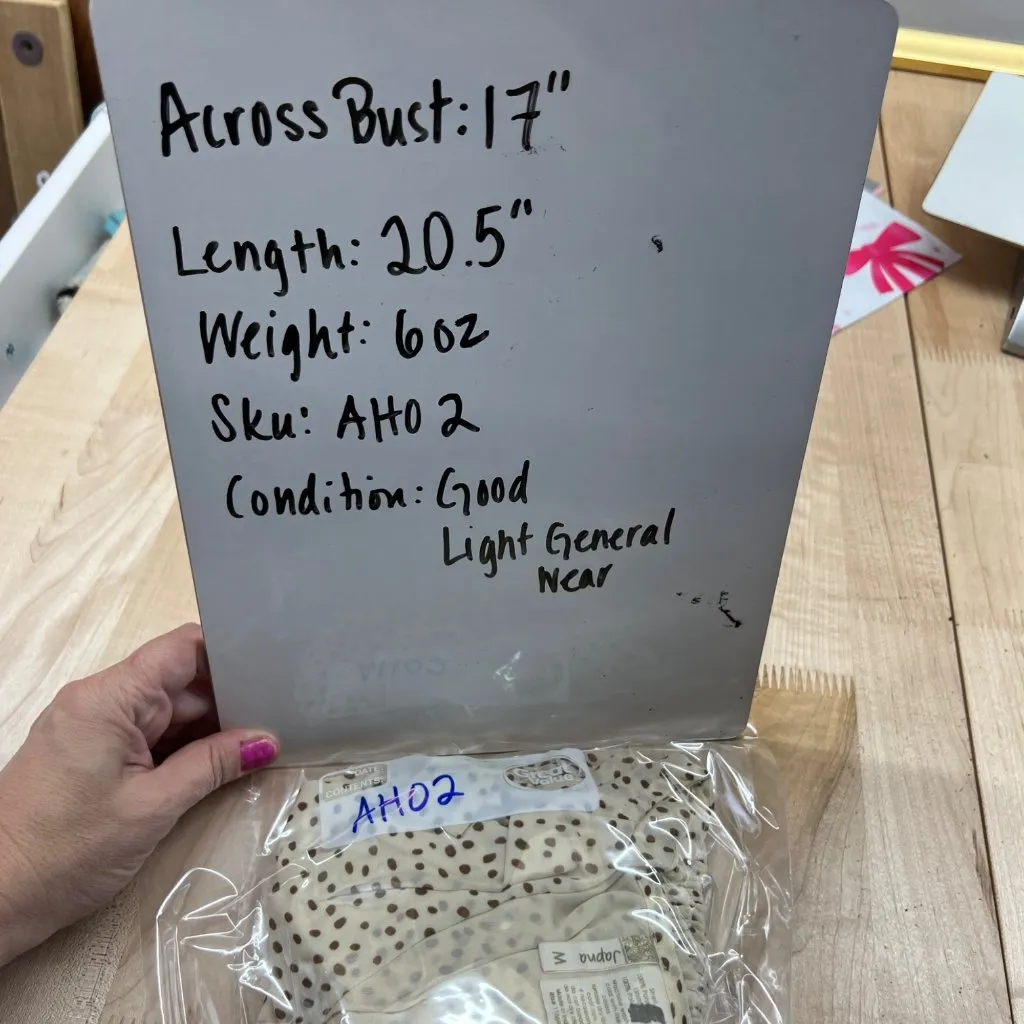 Across Bust: 17"
Length: 20.5"
Weight: 6oz
Sku: AH02
Condition: Good
Light General
Wear
DATE
CONTENTS
Great Value
AH02
Japna
M